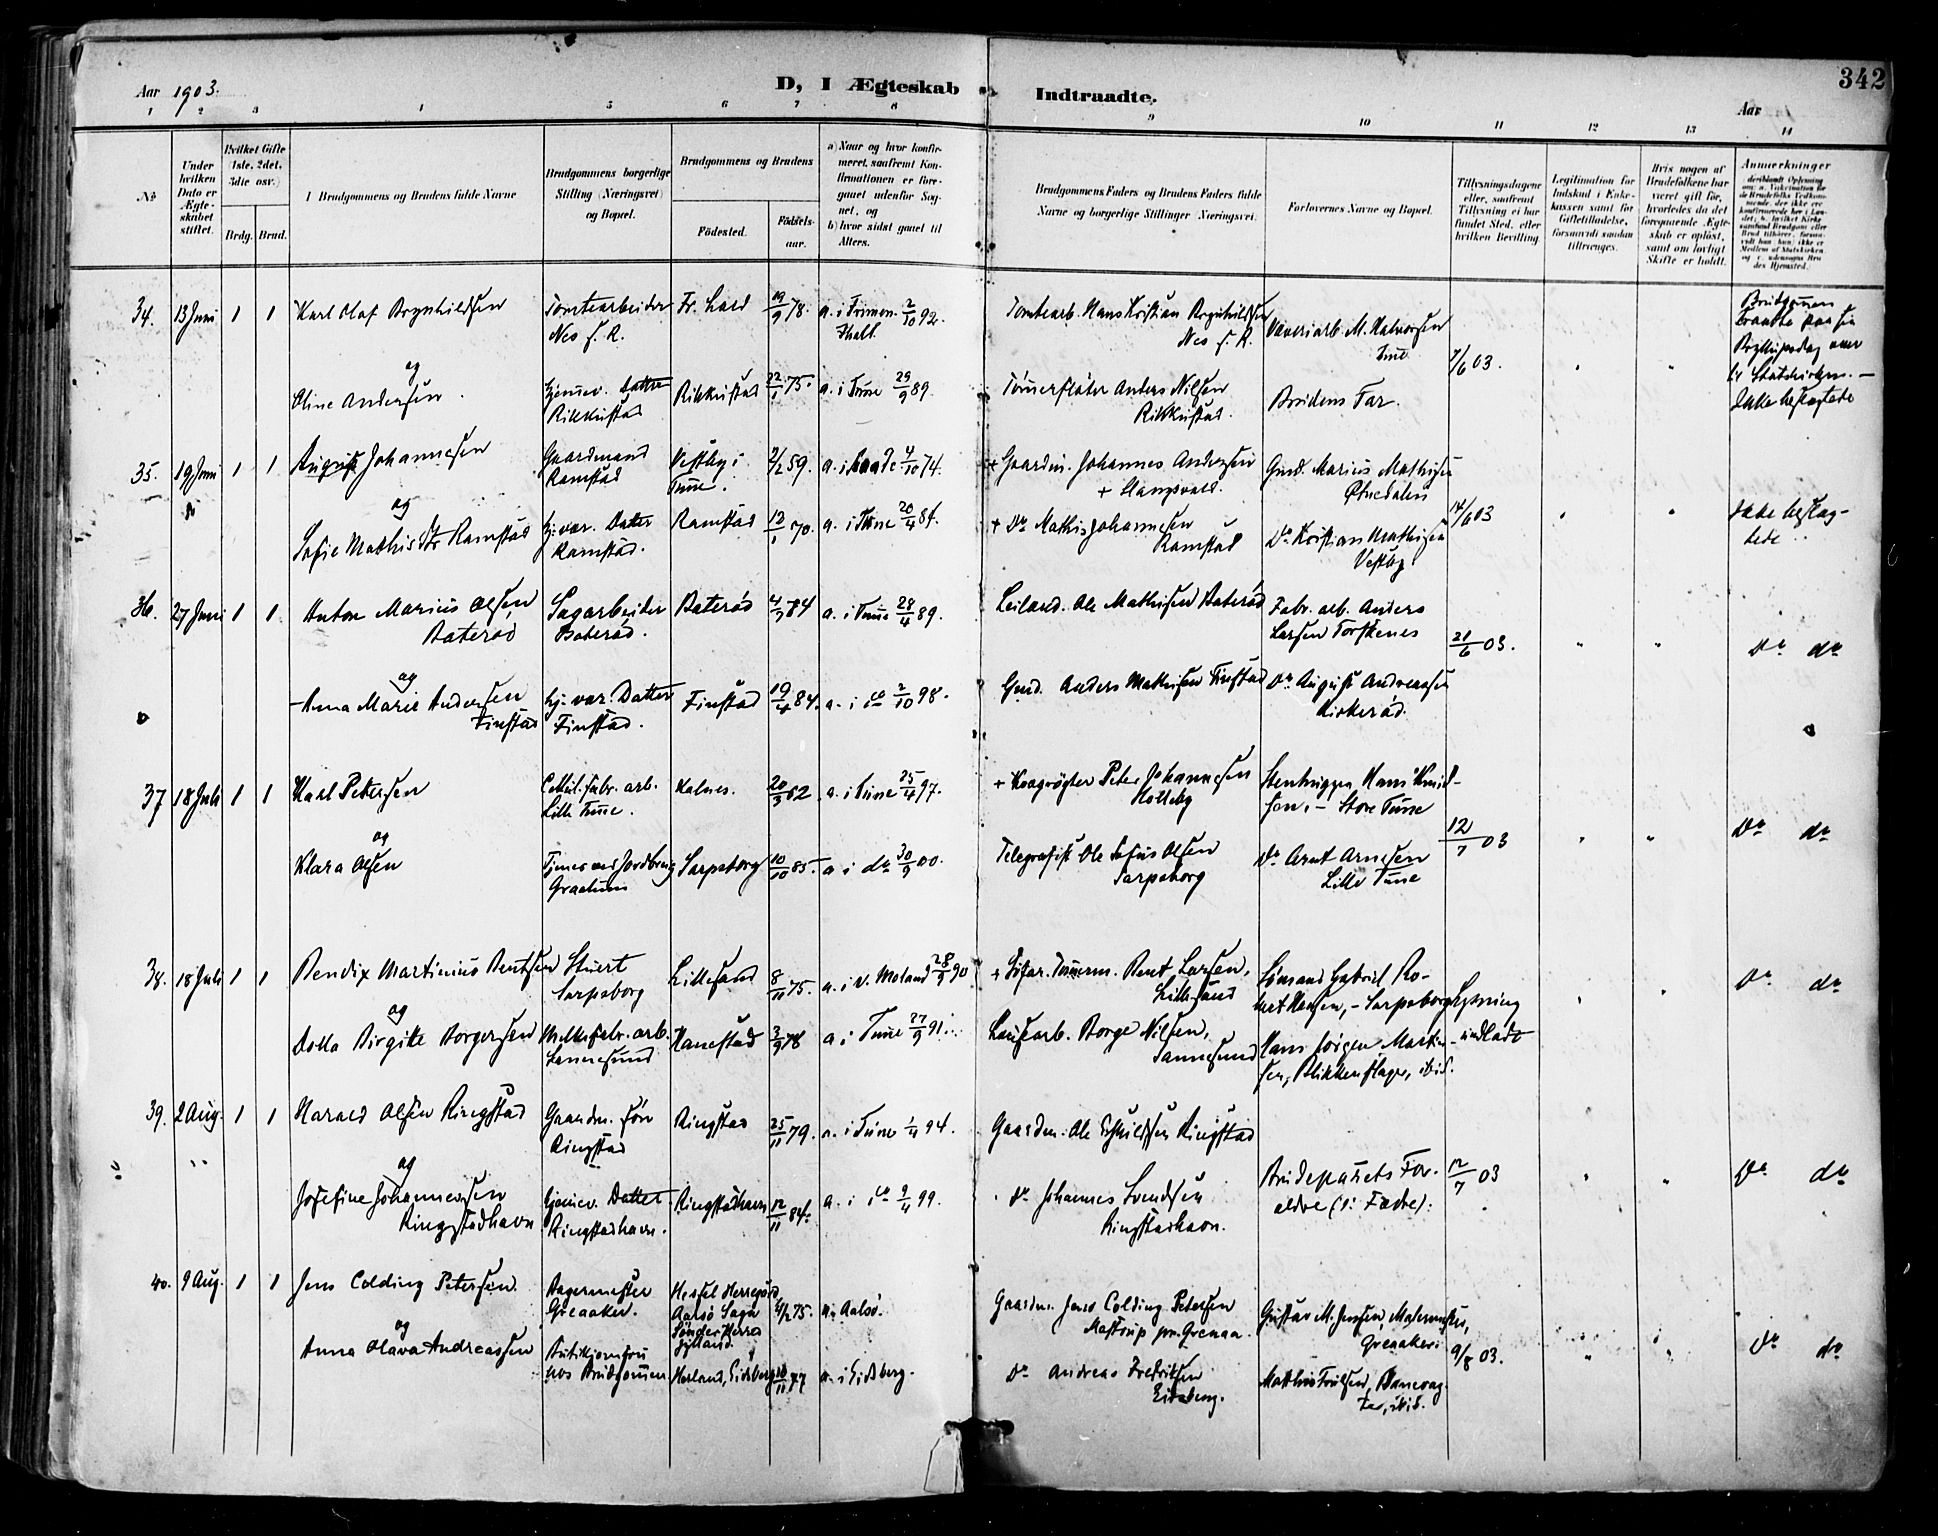 342
Aar 1903.
D, I Ægteskab Indtraadte.
Aar
1 2 3 4 5 6 7 8 9 10 11 12 13 14
No
Under hvilken Dato er Ægteskabet stiftet.
Hvilket Gifte (1ste, 2det, 3die osv.)
Brdg. Brud.
Brudgommens og Brudens fulde Navne
Brudgommens borgerlige Stilling (Næringsvei) og Bopæl.
Brudgommens og Brudens
Födested.
Födselsaar.
a) Naar og hvor konfirmeret, saafremt Konfirmationen er foregaaet udenfor Sognet, og
b) hvor sidst gaaet til Alters.
Brudgommens Faders og Brudens Faders fulde Navne og borgerlige Stillinger (Næringsvei.
Forlovernes Navne og Bopæl.
Tillysningsdagene eller, saafremt Tillysning ei har fundet Sted, efter hvilken Bevilling
Legitimation for Indskud i Enkekassen samt for Giftetilladelse, forsaavidt saadan tiltrænges.
Hvis nogen af Brudefolkene har været gift før, hvorledes da det foregaaende Ægteskab er opløst, samt om lovligt Skifte er holdt.
Anmærkninger
34. 13 Juni 1 1 Karl Olaf Brynhildsen
Tomtearbeider
Nes s. R.
19/9 78. a. i 2/10 92.
Tomtearb. Hans Kristian Brynhildsen
Nes s. R.
M. Halvorsen
Tune
7/6 03.
Brudgommen
og
Oline Andersen
Hjemmev. Datter
Rikkustad
Rikkustad 22/1 75. a. i Tune 29/9 89.
Tømmerfløter Anders Nilsen
Rikkustad.
Brudens Far.
35. 19 Juni 1 1 August Johannesen
Gaardmand
Ramstad
Vestby i
Tune.
2/2 59. a. i Raade 4/10 74.
+ Gaardm. Johannes Andersen
Gmd. Marius Mathisen
14/6 03
og
Sofie Mathisdtr Ramstad
Hj.vær. Datter
Ramstad.
Ramstad 12/1 70. a. i Tune 20/4 84.
+ Do Mathis Johannesen
Ramstad
Do Kristian Mathisen
Vestby
36. 27 Juni 1 1 Anton Marius Olsen
Baterød
Sagarbeider
Baterød.
Baterød a. i Tune 28/4 89.
Leiland. Ole Mathisen Baterød
Fabr. arb. Anders
Larsen Torskenes
21/6 03. Do do
og
Anna Marie Andersen
Finstad
Hj. vær. Datter
Finstad.
Finstad 19/4 84. a. i do 2/10 98.
Gmd. Anders Mathisen Finstad
Do August Andreassen
Kirkerød.
37 18 Juli 1 1 Karl Petersen
Cellul. fabr. arb.
Lille Tune.
Kalnes. a. i Tune 25/4 97.
+ Kvægrøgter Peter Johannesen
Holleby
Stenhugger Hans Knud-
sen, – Store Tune
12/7 03 Do do
og
Klara Olsen
Sarpsborg 10/10 85. a i do 30/9 00.
Graalum
Telegrafist Ole Sofus Olsen
Sarpsborg
Do Arnt Arnesen
Lille Tune
38. 18 Juli 1 1 Bendix Martinius Bentsen
Stuert
Sarpsborg
Lillesand 8/11 75. a. i V. Moland 28/9 90
+ Tømmerm. Bent Larsen,
Lillesand
Sømand Gabriel Ro-
bert Hansen, – Sarpsborg
Lysning
undladt
Do do
og
Dolla Birgitte Borgersen
Sannesund
Hanestad 3/9 78 a i Tune 27/9 91
Borge Nilsen,
Sannesund
Hans Jørgen Martin-
sen, Blikkenslager, ibid.
39. 2 Aug. 1 1 Harald Olsen Ringstad
Gaardm. søn
Ringstad
Ringstad 25/11 79. a. i Tune 1/4 94.
Gaardm. Ole Eskildsen Ringstad
Brudeparrets For-
ældre (ɔ: Fædre):
12/7 03 Do do
og
Josefine Johannessen
Ringstadhavn
Hjemmev. Datter
Ringstadhavn.
Ringstadhavn 12/11 84. a. i do 9/4 99.
Do Johannes Svendsen
Ringstadhavn.
40. 9 Aug. 1 1 Jens Colding Petersen.
Bagermester
Greaaker.
Hessel Herregård
Aalsö Sogn
Sönder Herred
Jylland.
4/2 75. a. Aalsö.
Gaardm. Jens Colding Petersen
Mastrup pr. Grenaa.
Gustav M. Jensen, Malermester,
Greaaker.
9/8 03. Do do
og
Anna Olava Andreassen
Butikjomfru
hos Brudgommen
Herland, Eidsberg 77 a. i Eidsberg.
Do Andreas Fredriksen
Eidsberg.